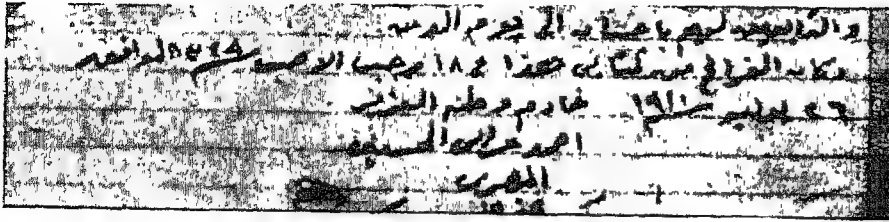 والتابعين لهم باحسان الى يوم الدين
وكان الفراغ من كتابى هذا فى ١٨ رجب الاصب سنة الموافقه
٢٦ يوليه سنة ١٩١٠ خادم وطنه العزيز
احمد عرابى الحسينى
المصرى